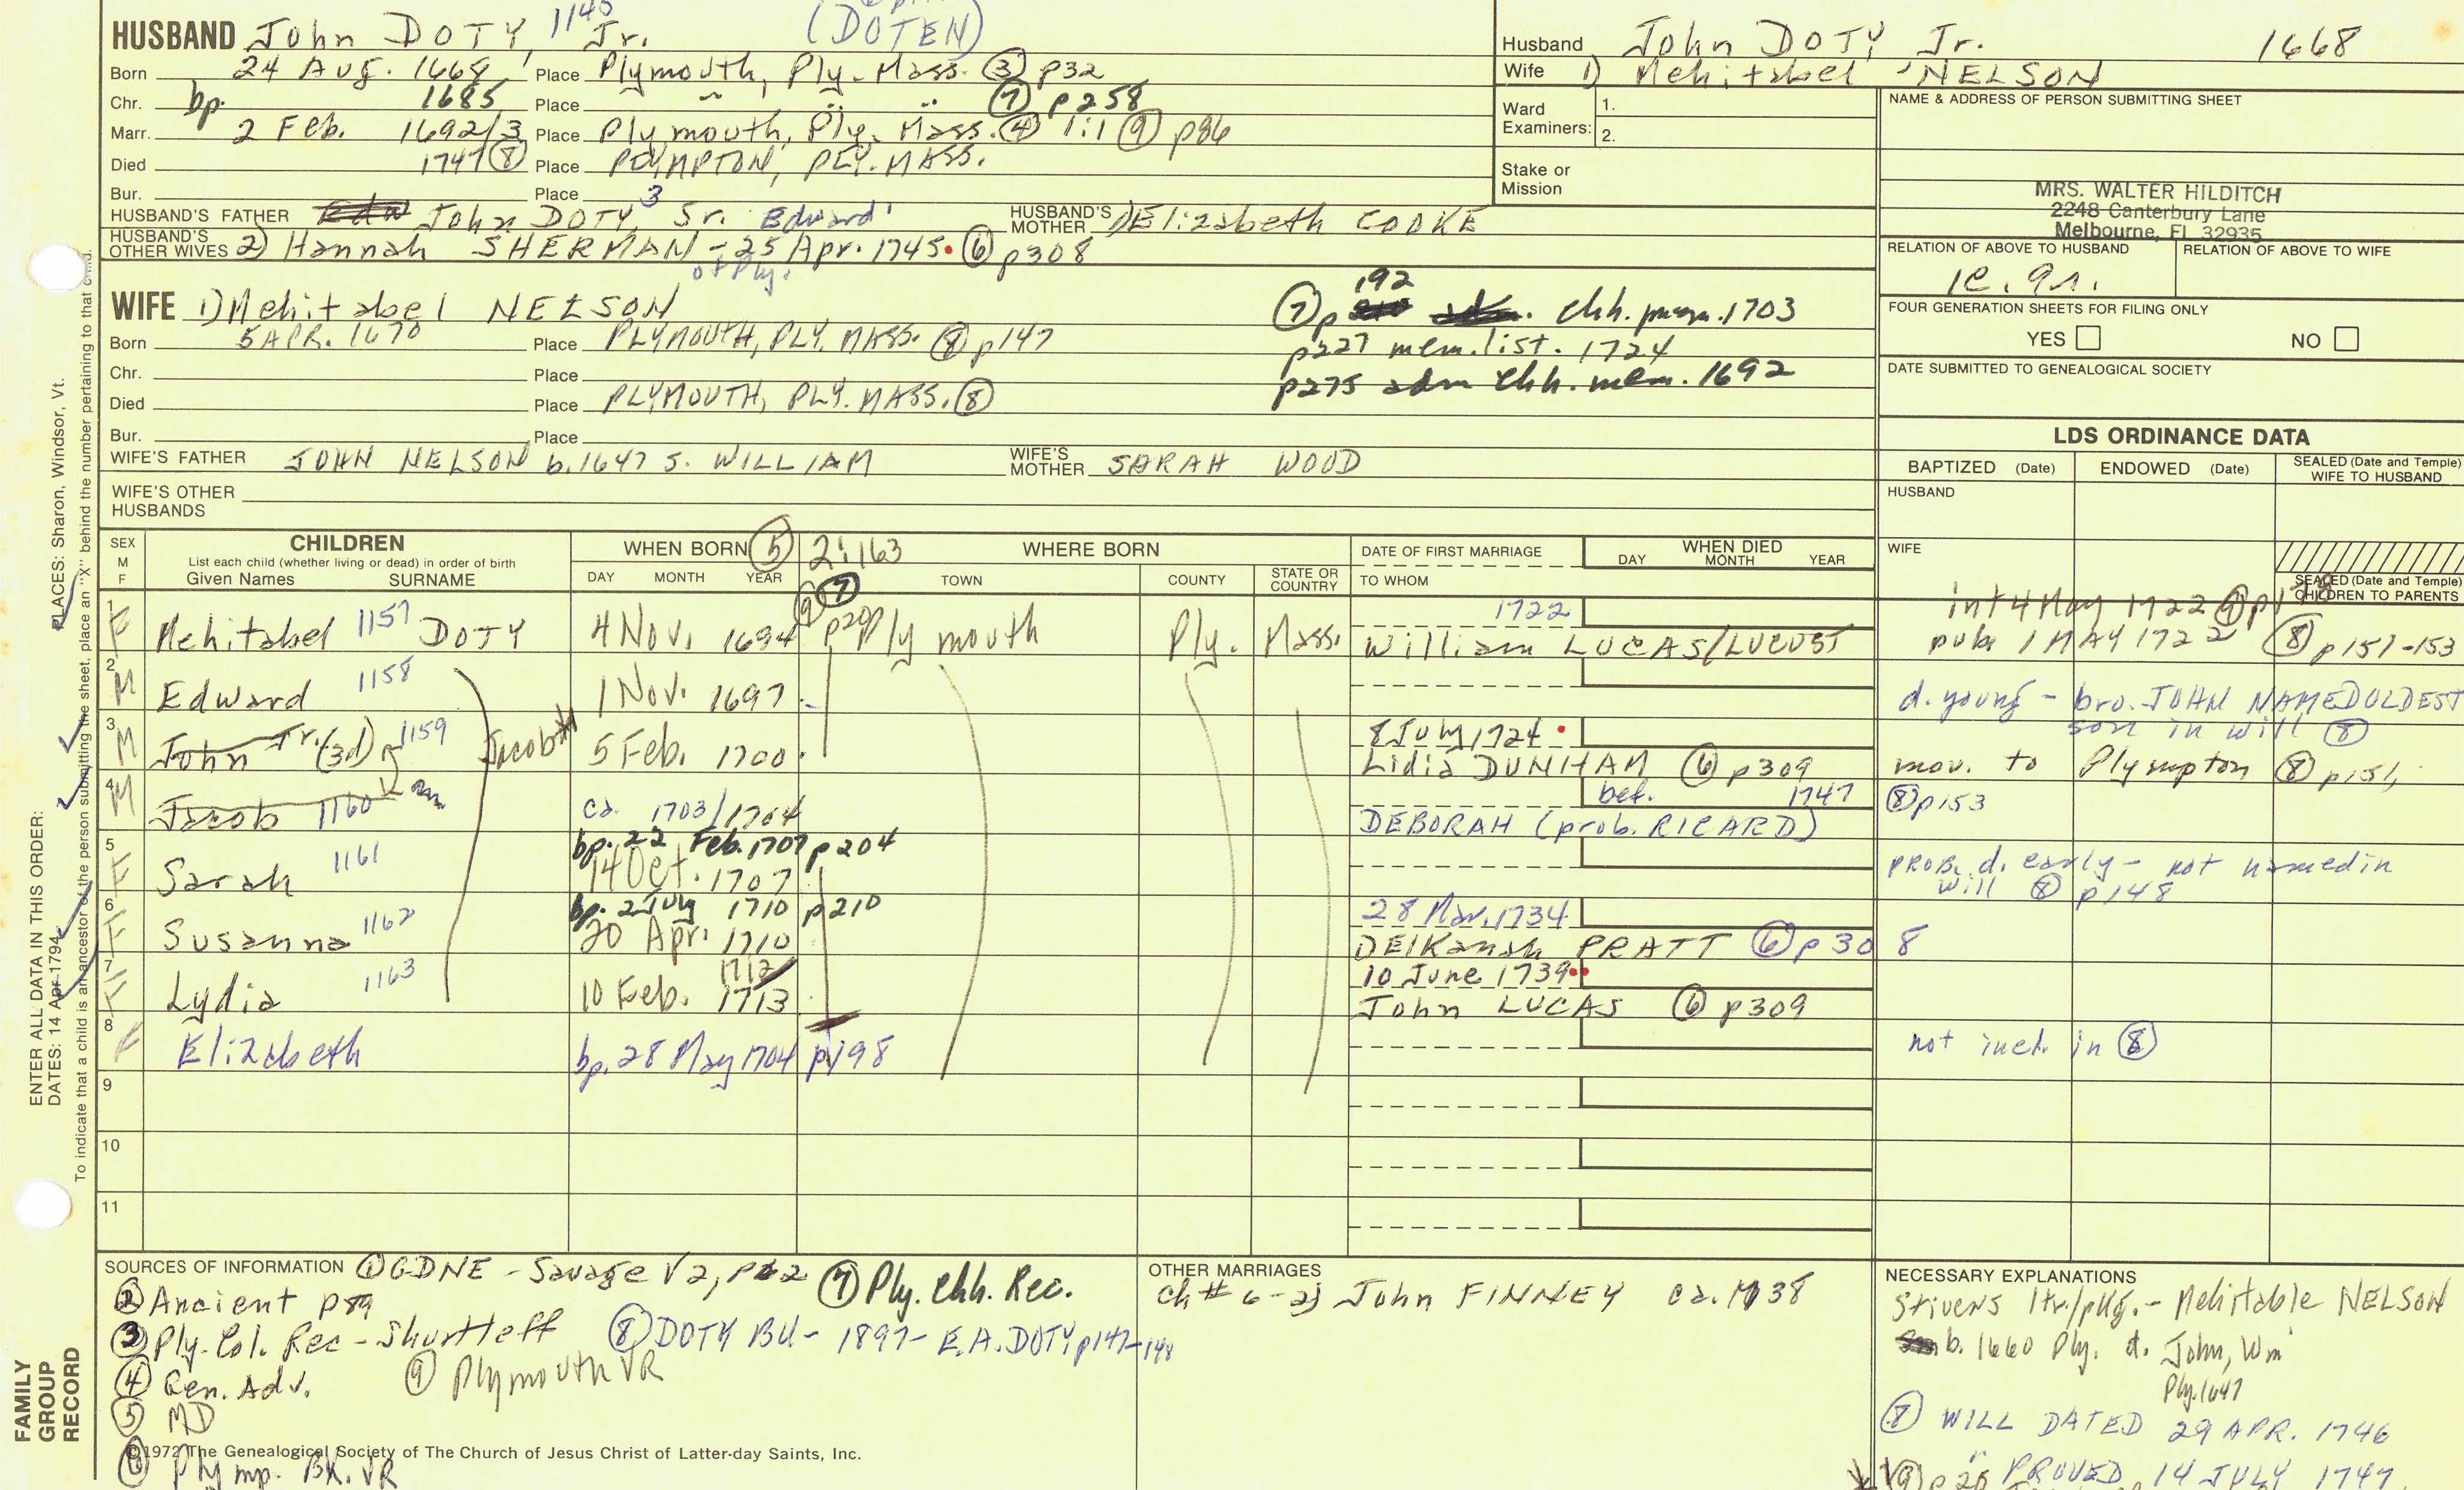 HUSBAND John DOTY, 1145 Jr. (DOTEN)
Born 24 Aug. 1668 Place Plymouth, Ply. Mass. ③ p32
Chr. bp. 1685 Place " " ⑦ p258
Marr. 2 Feb. 1692/3 Place Plymouth, Ply. Mass. ④ 1:1 ⑨ p86
Died 1747 ⑧ Place PLYMPTON, PLY. MASS.
Bur. Place
HUSBAND'S FATHER John DOTY, 3 Sr. Edward' HUSBAND'S MOTHER 1) Elizabeth COOKE
HUSBAND'S OTHER WIVES 2) Hannah SHERMAN - 25 Apr. 1745 ⑥ p308
of Ply.
Husband John DOTY, Jr. 1668
Wife 1) Mehitabel NELSON
Ward Examiners: 1.
2.
Stake or Mission
NAME & ADDRESS OF PERSON SUBMITTING SHEET
MRS. WALTER HILDITCH
2248 Canterbury Lane
Melbourne, FL 32935
RELATION OF ABOVE TO HUSBAND RELATION OF ABOVE TO WIFE
FOUR GENERATION SHEETS FOR FILING ONLY
YES NO
DATE SUBMITTED TO GENEALOGICAL SOCIETY
WIFE 1) Mehitabel NELSON
Born 5 APR. 1670 Place PLYMOUTH, PLY. MASS. ⑧ p147
Chr. Place
Died Place PLYMOUTH, PLY. MASS. ⑧
Bur. Place
⑦ p 192 chh. 1703
p227 mem. list. 1724
p275 adm chh. mem. 1692
WIFE'S FATHER JOHN NELSON b. 1647 S. WILLIAM WIFE'S MOTHER SARAH WOOD
WIFE'S OTHER HUSBANDS
LDS ORDINANCE DATA
BAPTIZED (Date) ENDOWED (Date) SEALED (Date and Temple) WIFE TO HUSBAND
HUSBAND
WIFE
SEALED (Date and Temple) CHILDREN TO PARENTS
SEX M F
CHILDREN
List each child (whether living or dead) in order of birth
Given Names SURNAME
WHEN BORN ⑤ 2:163
DAY MONTH YEAR
WHERE BORN
TOWN COUNTY STATE OR COUNTRY
DATE OF FIRST MARRIAGE
TO WHOM
WHEN DIED
DAY MONTH YEAR
⑨ ⑦
1 F Mehitabel 1157 DOTY 4 Nov. 1694 Plymouth Ply. Mass. 1722
William LUCAS/LUCUST
int 4 May 1722 ⑨
pub. 1 MAY 1722 ⑧ p151-153
2 M Edward 1158 1 Nov. 1697
d. young - bro. JOHN NAMED OLDEST
son in will ⑧
3 M John Jr. (3d) 1159 Jacob* 5 Feb. 1700 8 July 1724
Lidia DUNHAM ⑥ p309
mov. to Plympton ⑧ p151,
4 M Jacob 1160 ca. 1703/1704 bef. 1747
DEBORAH (prob. RICARD)
⑧ p153
5 F Sarah 1161 bp. 22 Feb. 1707 p204
14 Oct. 1707
PROB. d. early - not named in
will ⑧ p148
6 F Susanna 1162 bp. 2 July 1710 p210
20 Apr. 1710 28 Mar. 1734
DElKanah PRATT ⑥ p308
7 F Lydia 1163 10 Feb. 1712/1713 10 June 1739
John LUCAS ⑥ p309
8 F Elizabeth bp. 28 May 1704 p198 not incl. in ⑧
9
10
11
SOURCES OF INFORMATION ① GDNE - Savage V2, ⑦ Ply. Chh. Rec.
② Ancient p89
③ Ply. Col. Rec - Shurtleff ⑧ DOTY BK - 1897 - E.A. DOTY p147-148
④ Gen. Adv. ⑨ Plymouth VR
⑤ MD
© 1972 The Genealogical Society of The Church of Jesus Christ of Latter-day Saints, Inc.
⑥ Plymp. BK. VR
OTHER MARRIAGES
ch # 6 - 2) John FINNEY ca. 1738
NECESSARY EXPLANATIONS
Stivens ltr./pkg. - Mehitable NELSON
b. 1660 Ply. d. John, Wm
Ply. 1647
⑧ WILL DATED 29 APR. 1746
" PROVED 14 JULY 1747
ENTER ALL DATA IN THIS ORDER:
DATES: 14 Apr 1794
PLACES: Sharon, Windsor, Vt.
To indicate that a child is an ancestor of the person submitting the sheet, place an "X" behind the number pertaining to that child.
FAMILY
GROUP
RECORD